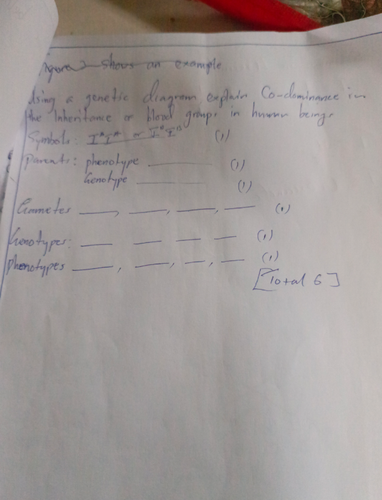 shows an example
Using a genetic diagram explain Co-dominance in
the Inheritance of blood groups in human beings
Symbols: or (1)
Parents: phenotype ______ (1)
Genotype ______ (1)
Gametes ___, ___, ___, ___ (1)
Genotypes ___ ___ ___ ___ (1)
phenotypes ___, ___, ___, ___ (1)
[Total 6]